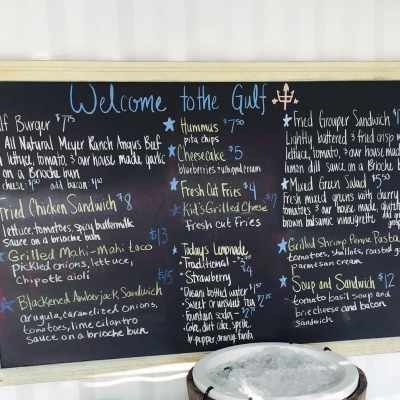 Welcome to the Gulf
lf Burger $7.75
All Natural Meyer Ranch Angus Beef
lettuce, tomato, & our house made garlic
on a Brioche bun
cheese: $.50 add bacon: $1.50
Fried Chicken Sandwich $8
lettuce, tomatoes, spicy buttermilk
sauce on a brioche bun
Grilled Mahi-Mahi taco $13
Pickled onions, lettuce,
chipotle aioli
$15
Blackened Amberjack Sandwich
arugula, caramelized onions,
tomatoes, lime cilantro
sauce on a brioche bun
Hummus $7.50
pita chips
Cheesecake $5
blueberries whip cream
Fresh Cut Fries $4
Kid's Grilled Cheese $7
fresh cut fries
Today's Lemonade
Traditional
Strawberry $4
Dasani bottled water
Sweet or unsweet tea
fountain soda
Coke, diet coke, sprite,
dr. pepper, orange fanta
Fried Grouper Sandwich
Lightly battered & fried crisp w
lettuce, tomato, & our house made
lemon dill sauce on a Brioche
Mixed Green Salad $5.50
fresh mixed greens with cherry
tomatoes & our house made
brown balsamic vinaigrette
Grilled Shrimp Penne Pasta
tomatoes, shallots, roasted
parmesan cream
Soup and Sandwich $12
tomato basil soup and
brie cheese and bacon
sandwich